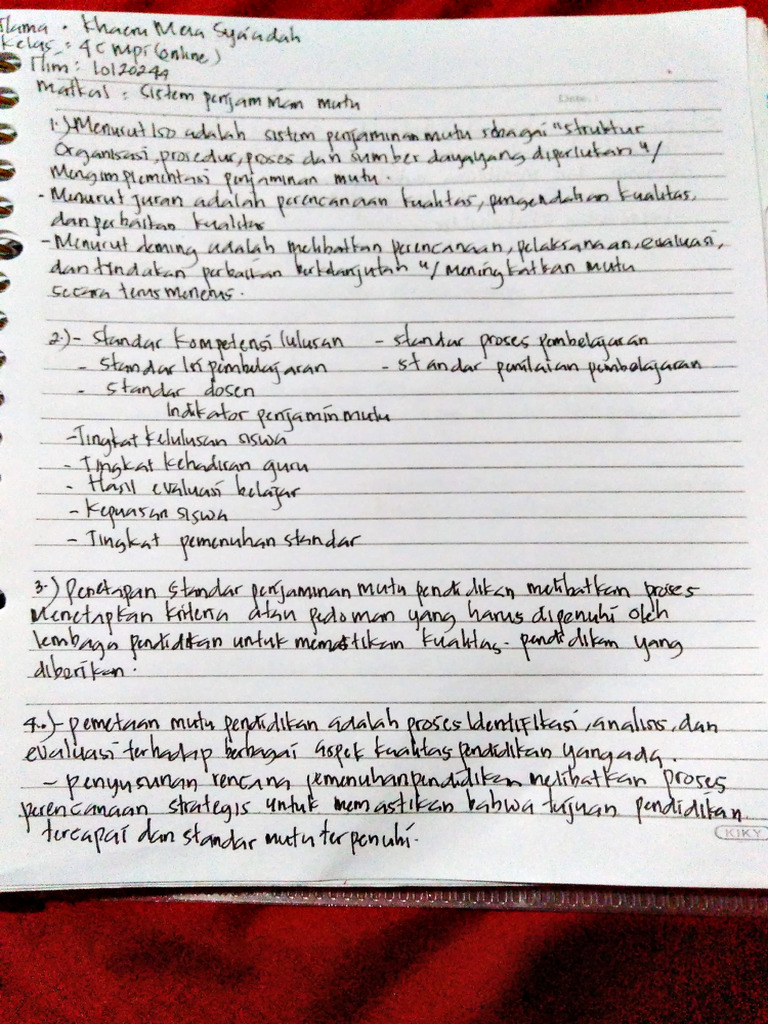 Nama . Khaeru Mera Sya'adah
Kelas : 4C Mpi (online)
Nim : 10120249
Matkul : Sistem penjaminan mutu
Date :
1.) Menurut Iso adalah sistem penjaminan mutu sebagai "struktur
Organisasi, prosedur, proses dan sumber daya yang diperlukan u/
Mengimplementasi penjaminan mutu.
- Menurut juran adalah perencanaan kualitas, pengendalian kualitas,
dan perbaikan kualitas
- Menurut deming adalah melibatkan perencanaan, pelaksanaan, evaluasi,
dan tindakan perbaikan berkelanjutan u/ meningkatkan mutu
secara terus menerus.
2.) - Standar kompetensi lulusan - standar proses pembelajaran
- Standar Isi pembelajaran - standar penilaian pembelajaran
- Standar dosen
Indikator penjamin mutu
- Tingkat kelulusan siswa
- Tingkat kehadiran guru
- Hasil evaluasi belajar
- Kepuasan siswa
- Tingkat pemenuhan standar
3.) Penetapan standar penjaminan mutu pendidikan melibatkan proses
Menetapkan kriteria atau pedoman yang harus dipenuhi oleh
lembaga pendidikan untuk memastikan kualitas pendidikan yang
diberikan.
4.) - pemetaan mutu pendidikan adalah proses Identifikasi, analisis, dan
evaluasi terhadap berbagai aspek kualitas pendidikan yang ada.
- penyusunan rencana pemenuhan pendidikan melibatkan proses
perencanaan strategis untuk memastikan bahwa tujuan pendidikan
tercapai dan standar mutu terpenuhi.
KIKY